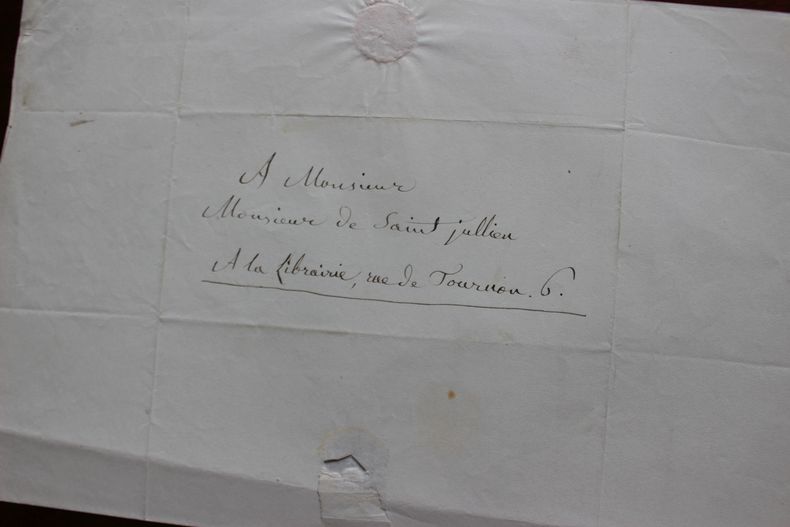 A Monsieur
Monsieur de Saint jullien
A la Librairie, rue de Tournon. 6.